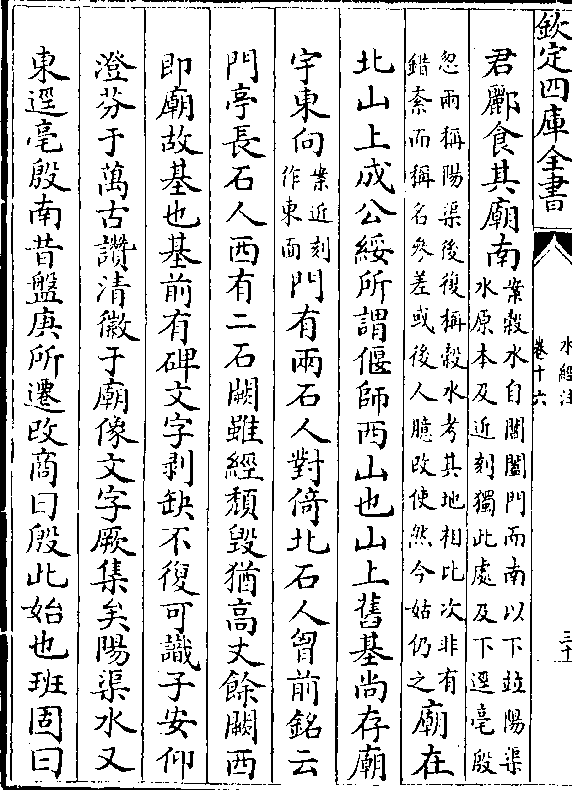 欽定四庫全書
水經注
卷十六
三十一
君酈食其廟南
案穀水自閶闔門而南以下竝陽渠
水原本及近刻獨此處及下逕亳殷
忽兩稱陽渠後復稱穀水考其地相比次非有
錯紊而稱名參差或後人臆改使然今姑仍之
廟在
北山上成公綏所謂偃師西山也山上舊基尚存廟
宇東向
案近刻
作東面
門有兩石人對倚北石人胷前銘云
門亭長石人西有二石闕雖經頹毀猶高丈餘闕西
即廟故基也基前有碑文字剥缺不復可識子安仰
澄芬于萬古讚清徽于廟像文字厥集矣陽渠水又
東逕亳殷南昔盤庚所遷改商曰殷此始也班固曰